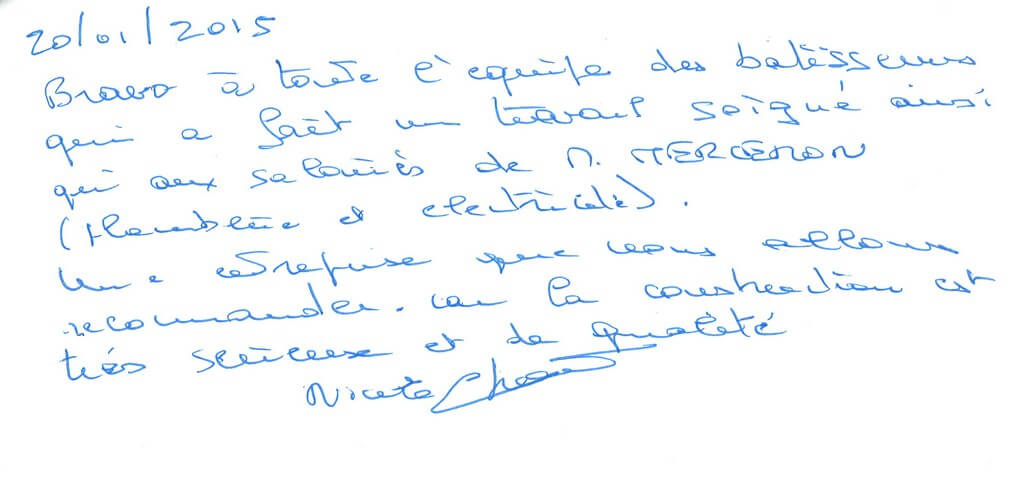 20/01/2015
Bravo à toute l'équipe des batisseurs
qui a fait un travail soigné ainsi
qui aux salariés de M. MERCERON
(Plomberie et electricité).
Une entreprise que nous allons
recommander. car la construction est
très sérieuse et de qualité